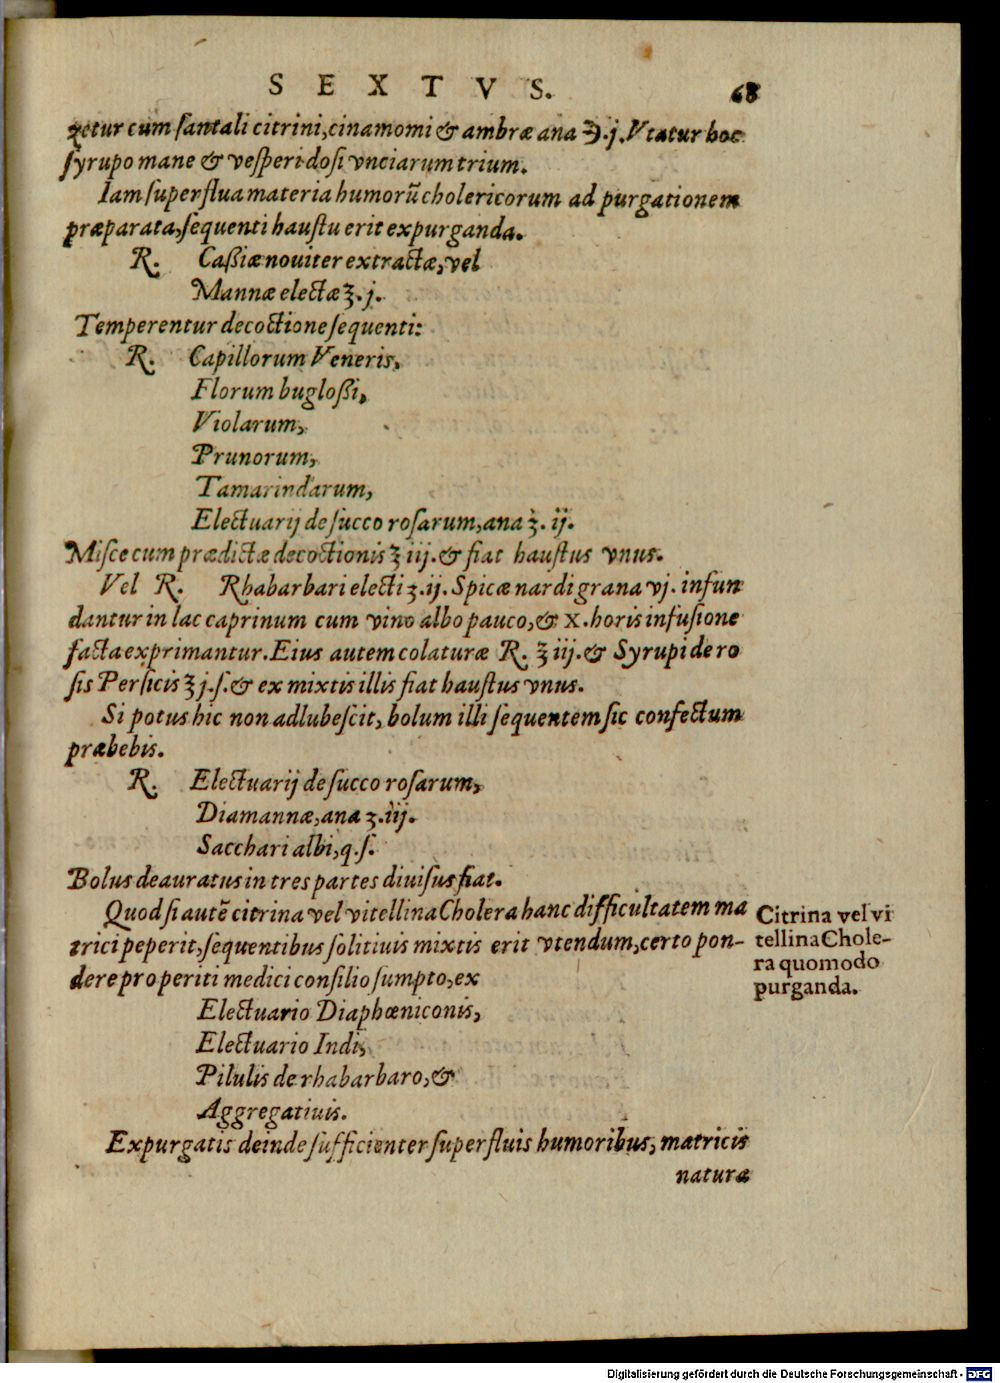 SEXTVS. 68
getur cum ſantali citrini, cinamomi & ambræ ana ℈.j. Vtatur hoc
ſyrupo mane & veſperi doſi vnciarum trium.
Iam ſuperflua materia humorũ cholericorum ad purgationem
præparata, ſequenti hauſtu erit expurganda.
R. Caßiæ nouiter extractæ, vel
Mannæ electæ ℥. j.
Temperentur decoctione ſequenti:
R. Capillorum Veneris,
Florum bugloßi,
Violarum,
Prunorum,
Tamarindarum,
Electuarij de ſucco roſarum, ana ʒ. ij.
Miſce cum prædictæ decoctionis ℥ iij. & fiat hauſtus vnus.
Vel R. Rhabarbari electi ʒ. ij. Spicæ nardi grana vj. infun
dantur in lac caprinum cum vino albo pauco, & x. horis infuſione
facta exprimantur. Eius autem colaturæ R. ℥ iij. & Syrupi de ro
ſis Perſicis ℥ j. ſ. & ex mixtis illis fiat hauſtus vnus.
Si potus hic non adlubeſcit, bolum illi ſequentem ſic confectum
præbebis.
R. Electuarij de ſucco roſarum,
Diamannæ, ana ʒ. iij.
Sacchari albi, q. ſ.
Bolus deauratus in tres partes diuiſus fiat.
Quod ſi autē citrina vel vitellina Cholera hanc difficultatem ma
trici peperit, ſequentibus ſolitiuis mixtis erit vtendum, certo pon-
dere pro periti medici conſilio ſumpto, ex
Citrina vel vi
tellina Chole-
ra quomodo
purganda.
Electuario Diaphœniconis,
Electuario Indi,
Pilulis de rhabarbaro, &
Aggregatiuis.
Expurgatis deinde ſufficienter ſuperfluis humoribus, matricis
naturæ
Digitalisierung gefördert durch die Deutsche Forschungsgemeinschaft - DFG